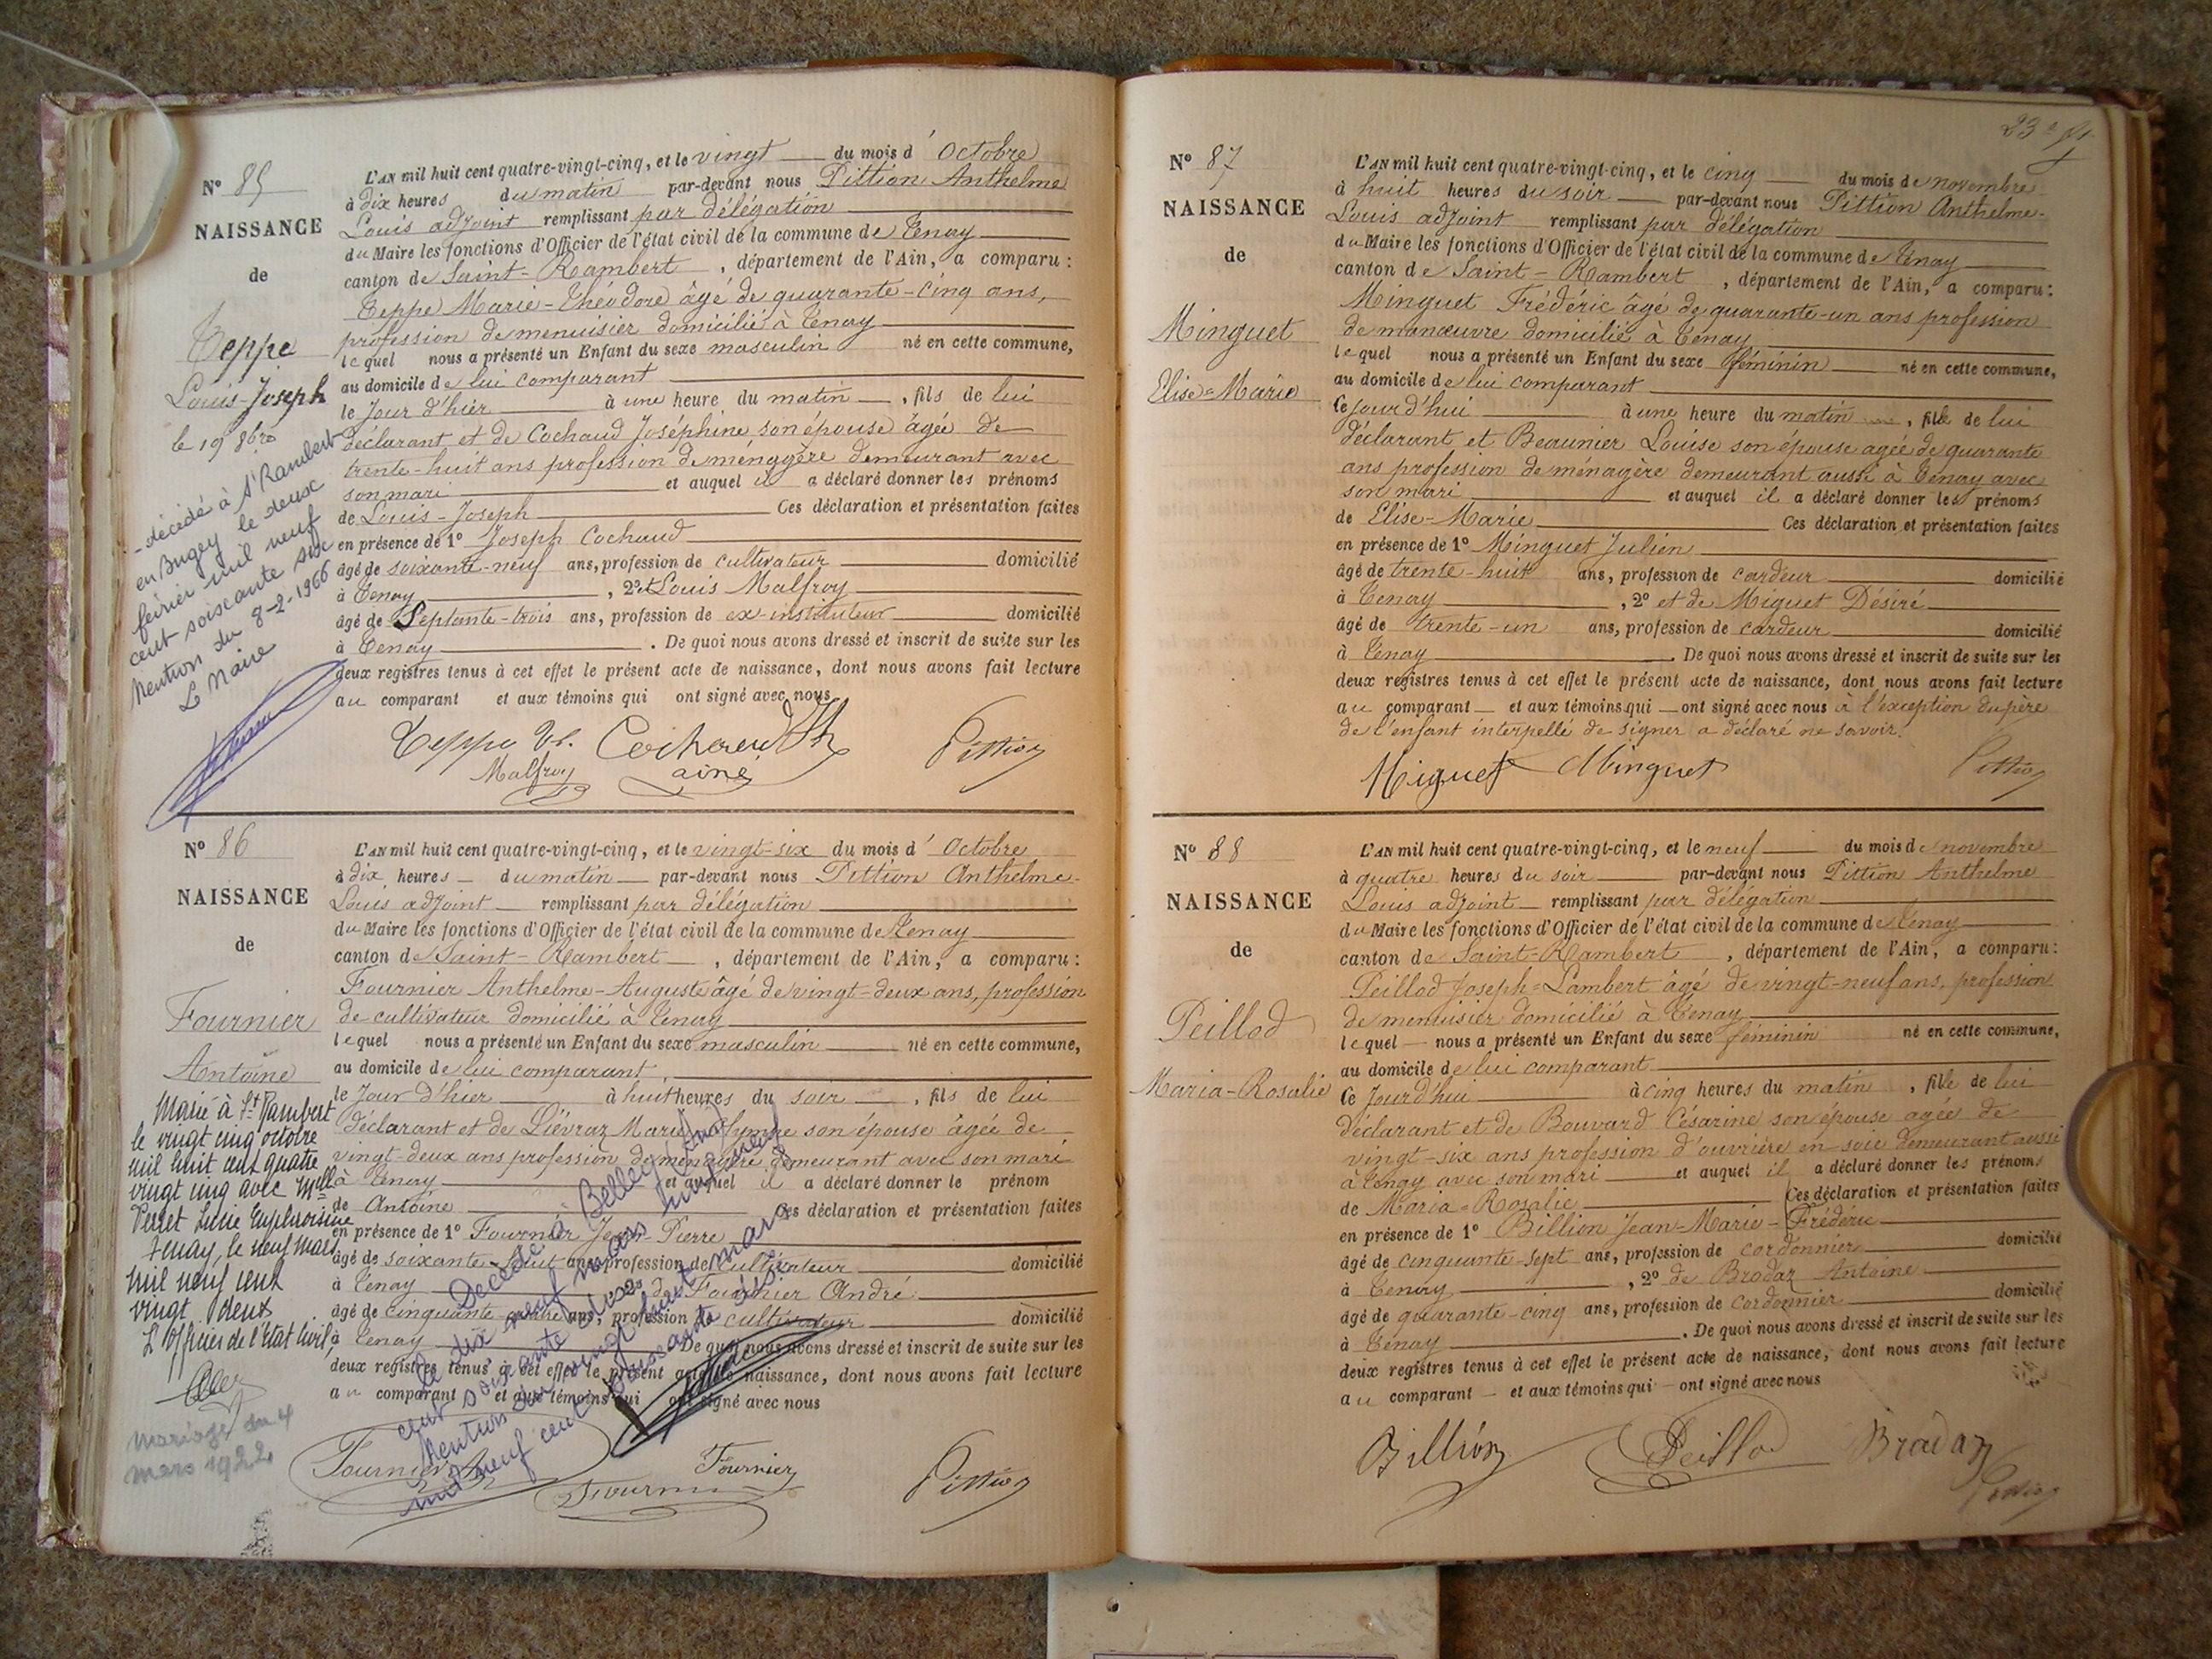 N° 85
NAISSANCE
de
Teppe
Louis-Joseph
le 19 8bre
- décédé à St Rambert
en Bugey le deux
février mil neuf
cent soixante six
Mention du 8-2-1966
Le Maire
L'AN mil huit cent quatre-vingt-cinq, et le vingt du mois d'Octobre
à dix heures du matin par-devant nous Pittion Anthelme
Louis adjoint remplissant par délégation
du Maire les fonctions d'Officier de l'état civil de la commune de Tenay
canton de Saint-Rambert, département de l'Ain, a comparu :
Teppe Marie-Théodore âgé de quarante-cinq ans,
profession de menuisier domicilié à Tenay
lequel nous a présenté un Enfant du sexe masculin né en cette commune,
au domicile de lui comparant
le jour d'hier à une heure du matin, fils de lui
déclarant et de Cochaud Joséphine son épouse âgée de
trente-huit ans profession de ménagère demeurant avec
son mari et auquel il a déclaré donner les prénoms
de Louis-Joseph Ces déclaration et présentation faites
en présence de 1° Joseph Cochaud
âgé de soixante-neuf ans, profession de cultivateur domicilié
à Tenay, 2° et Louis Malfroy
âgé de Septante-trois ans, profession de ex-instituteur domicilié
à Tenay. De quoi nous avons dressé et inscrit de suite sur les
deux registres tenus à cet effet le présent acte de naissance, dont nous avons fait lecture
au comparant et aux témoins qui ont signé avec nous
Teppe Cochaud Pittion
Malfroy ainé
N° 86
NAISSANCE
de
Fournier
Antoine
Marié à St Rambert
le vingt cinq octobre
mil huit cent quatre
vingt cinq avec Mlle
Perret Lucie Euphroisine
Tenay, le neuf mars
mil neuf cent
vingt deux
L'Officier de l'Etat Civil,
mariage du 4
mars 1922
L'AN mil huit cent quatre-vingt-cinq, et le vingt-six du mois d'Octobre
à dix heures du matin par-devant nous Pittion Anthelme
Louis adjoint remplissant par délégation
du Maire les fonctions d'Officier de l'état civil de la commune de Tenay
canton de Saint-Rambert, département de l'Ain, a comparu :
Fournier Anthelme-Auguste âgé de vingt-deux ans, profession
de cultivateur domicilié à Tenay
lequel nous a présenté un Enfant du sexe masculin né en cette commune,
au domicile de lui comparant
le jour d'hier à huit heures du soir, fils de lui
déclarant et de Liévraz Marie Olympe son épouse âgée de
vingt-deux ans profession de ménagère demeurant avec son mari
à Tenay et auquel il a déclaré donner le prénom
de Antoine Ces déclaration et présentation faites
en présence de 1° Fournier Jean-Pierre
âgé de soixante-huit ans, profession de cultivateur domicilié
à Tenay, 2° de Fournier André
âgé de cinquante ans, profession de cultivateur domicilié
à Tenay De quoi nous avons dressé et inscrit de suite sur les
deux registres tenus à cet effet le présent acte de naissance, dont nous avons fait lecture
au comparant et aux témoins qui ont signé avec nous
Décédé à Belley (Ain)
le dix neuf mars mil neuf
cent soixante six
Mention du vingt huit mars
mil neuf cent soixante six
Fournier Fournier Fournier Pittion
23e
N° 87
NAISSANCE
de
Minguet
Elise-Marie
L'AN mil huit cent quatre-vingt-cinq, et le cinq du mois de novembre
à huit heures du soir par-devant nous Pittion Anthelme-
Louis adjoint remplissant par délégation
du Maire les fonctions d'Officier de l'état civil de la commune de Tenay
canton de Saint-Rambert, département de l'Ain, a comparu :
Minguet Frédéric âgé de quarante-un ans profession
de manœuvre domicilié à Tenay
lequel nous a présenté un Enfant du sexe féminin né en cette commune,
au domicile de lui comparant
ce jourd'hui à une heure du matin, fille de lui
déclarant et Beaunier Louise son épouse agée de quarante
ans profession de ménagère demeurant aussi à Tenay avec
son mari et auquel il a déclaré donner les prénoms
de Elise-Marie Ces déclaration et présentation faites
en présence de 1° Minguet Julien
âgé de trente-huit ans, profession de cardeur domicilié
à Tenay, 2° et de Miguet Désiré
âgé de trente-un ans, profession de cardeur domicilié
à Tenay. De quoi nous avons dressé et inscrit de suite sur les
deux registres tenus à cet effet le présent acte de naissance, dont nous avons fait lecture
au comparant et aux témoins qui ont signé avec nous à l'exception du père
de l'enfant interpellé de signer a déclaré ne savoir.
Miguet Minguet Pittion
N° 88
NAISSANCE
de
Peillod
Maria-Rosalie
L'AN mil huit cent quatre-vingt-cinq, et le neuf du mois de novembre
à quatre heures du soir par-devant nous Pittion Anthelme
Louis adjoint remplissant par délégation
du Maire les fonctions d'Officier de l'état civil de la commune de Tenay
canton de Saint-Rambert, département de l'Ain, a comparu :
Peillod Joseph-Lambert âgé de vingt-neuf ans, profession
de menuisier domicilié à Tenay
lequel nous a présenté un Enfant du sexe féminin né en cette commune,
au domicile de lui comparant
ce jourd'hui à cinq heures du matin, fille de lui
déclarant et de Bouvard Césarine son épouse agée de
vingt-six ans profession d'ouvrière en soie demeurant aussi
à Tenay avec son mari et auquel il a déclaré donner les prénoms
de Maria-Rosalie Ces déclaration et présentation faites
en présence de 1° Billion Jean-Marie-Frédéric
âgé de cinquante-sept ans, profession de cordonnier domicilié
à Tenay, 2° de Brodaz Antoine
âgé de quarante-cinq ans, profession de cordonnier domicilié
à Tenay. De quoi nous avons dressé et inscrit de suite sur les
deux registres tenus à cet effet le présent acte de naissance, dont nous avons fait lecture
au comparant et aux témoins qui ont signé avec nous
Billion Peillod Brodaz
Pittion